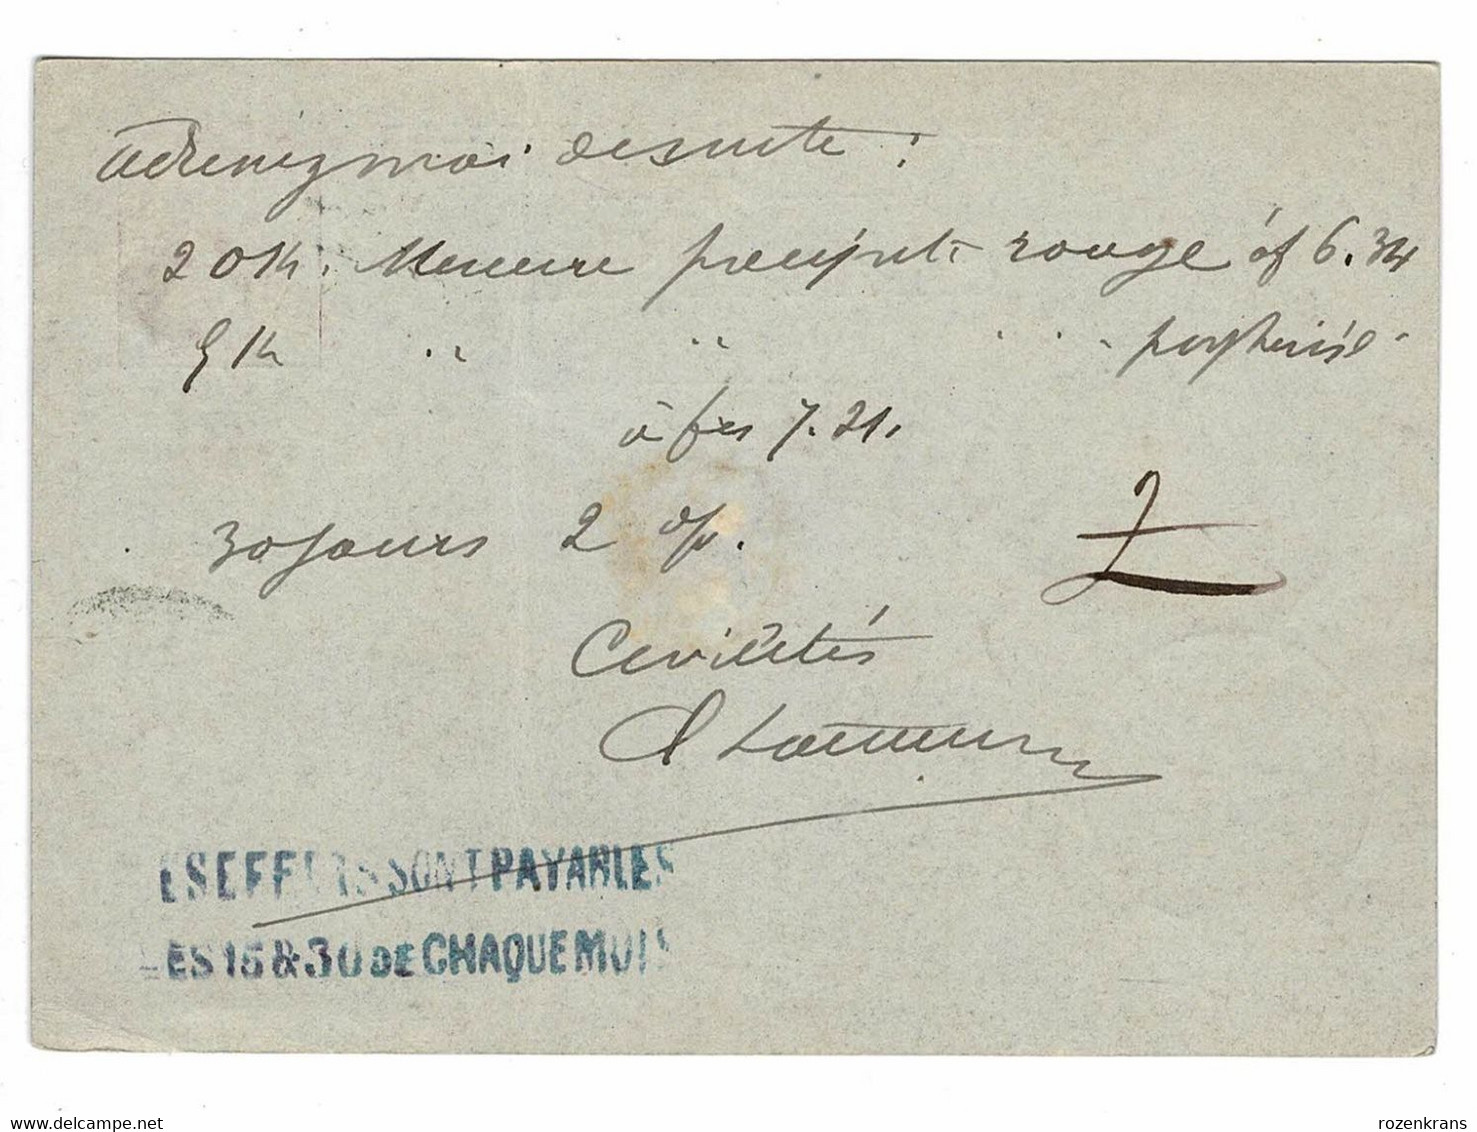 adressez moi desuite :
20 K. Mercure précipité rouge à f 6.34
5 K " " " porphirisé
à frs 7.21.
30 jours 2 %.
Civilités
LES EFFETS SONT PAYABLES
LES 15 & 30 DE CHAQUE MOIS
rozenkrans